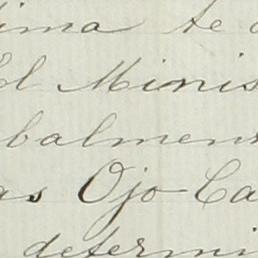 tima te
El Minis
balmen
as Ojo Ca
determi